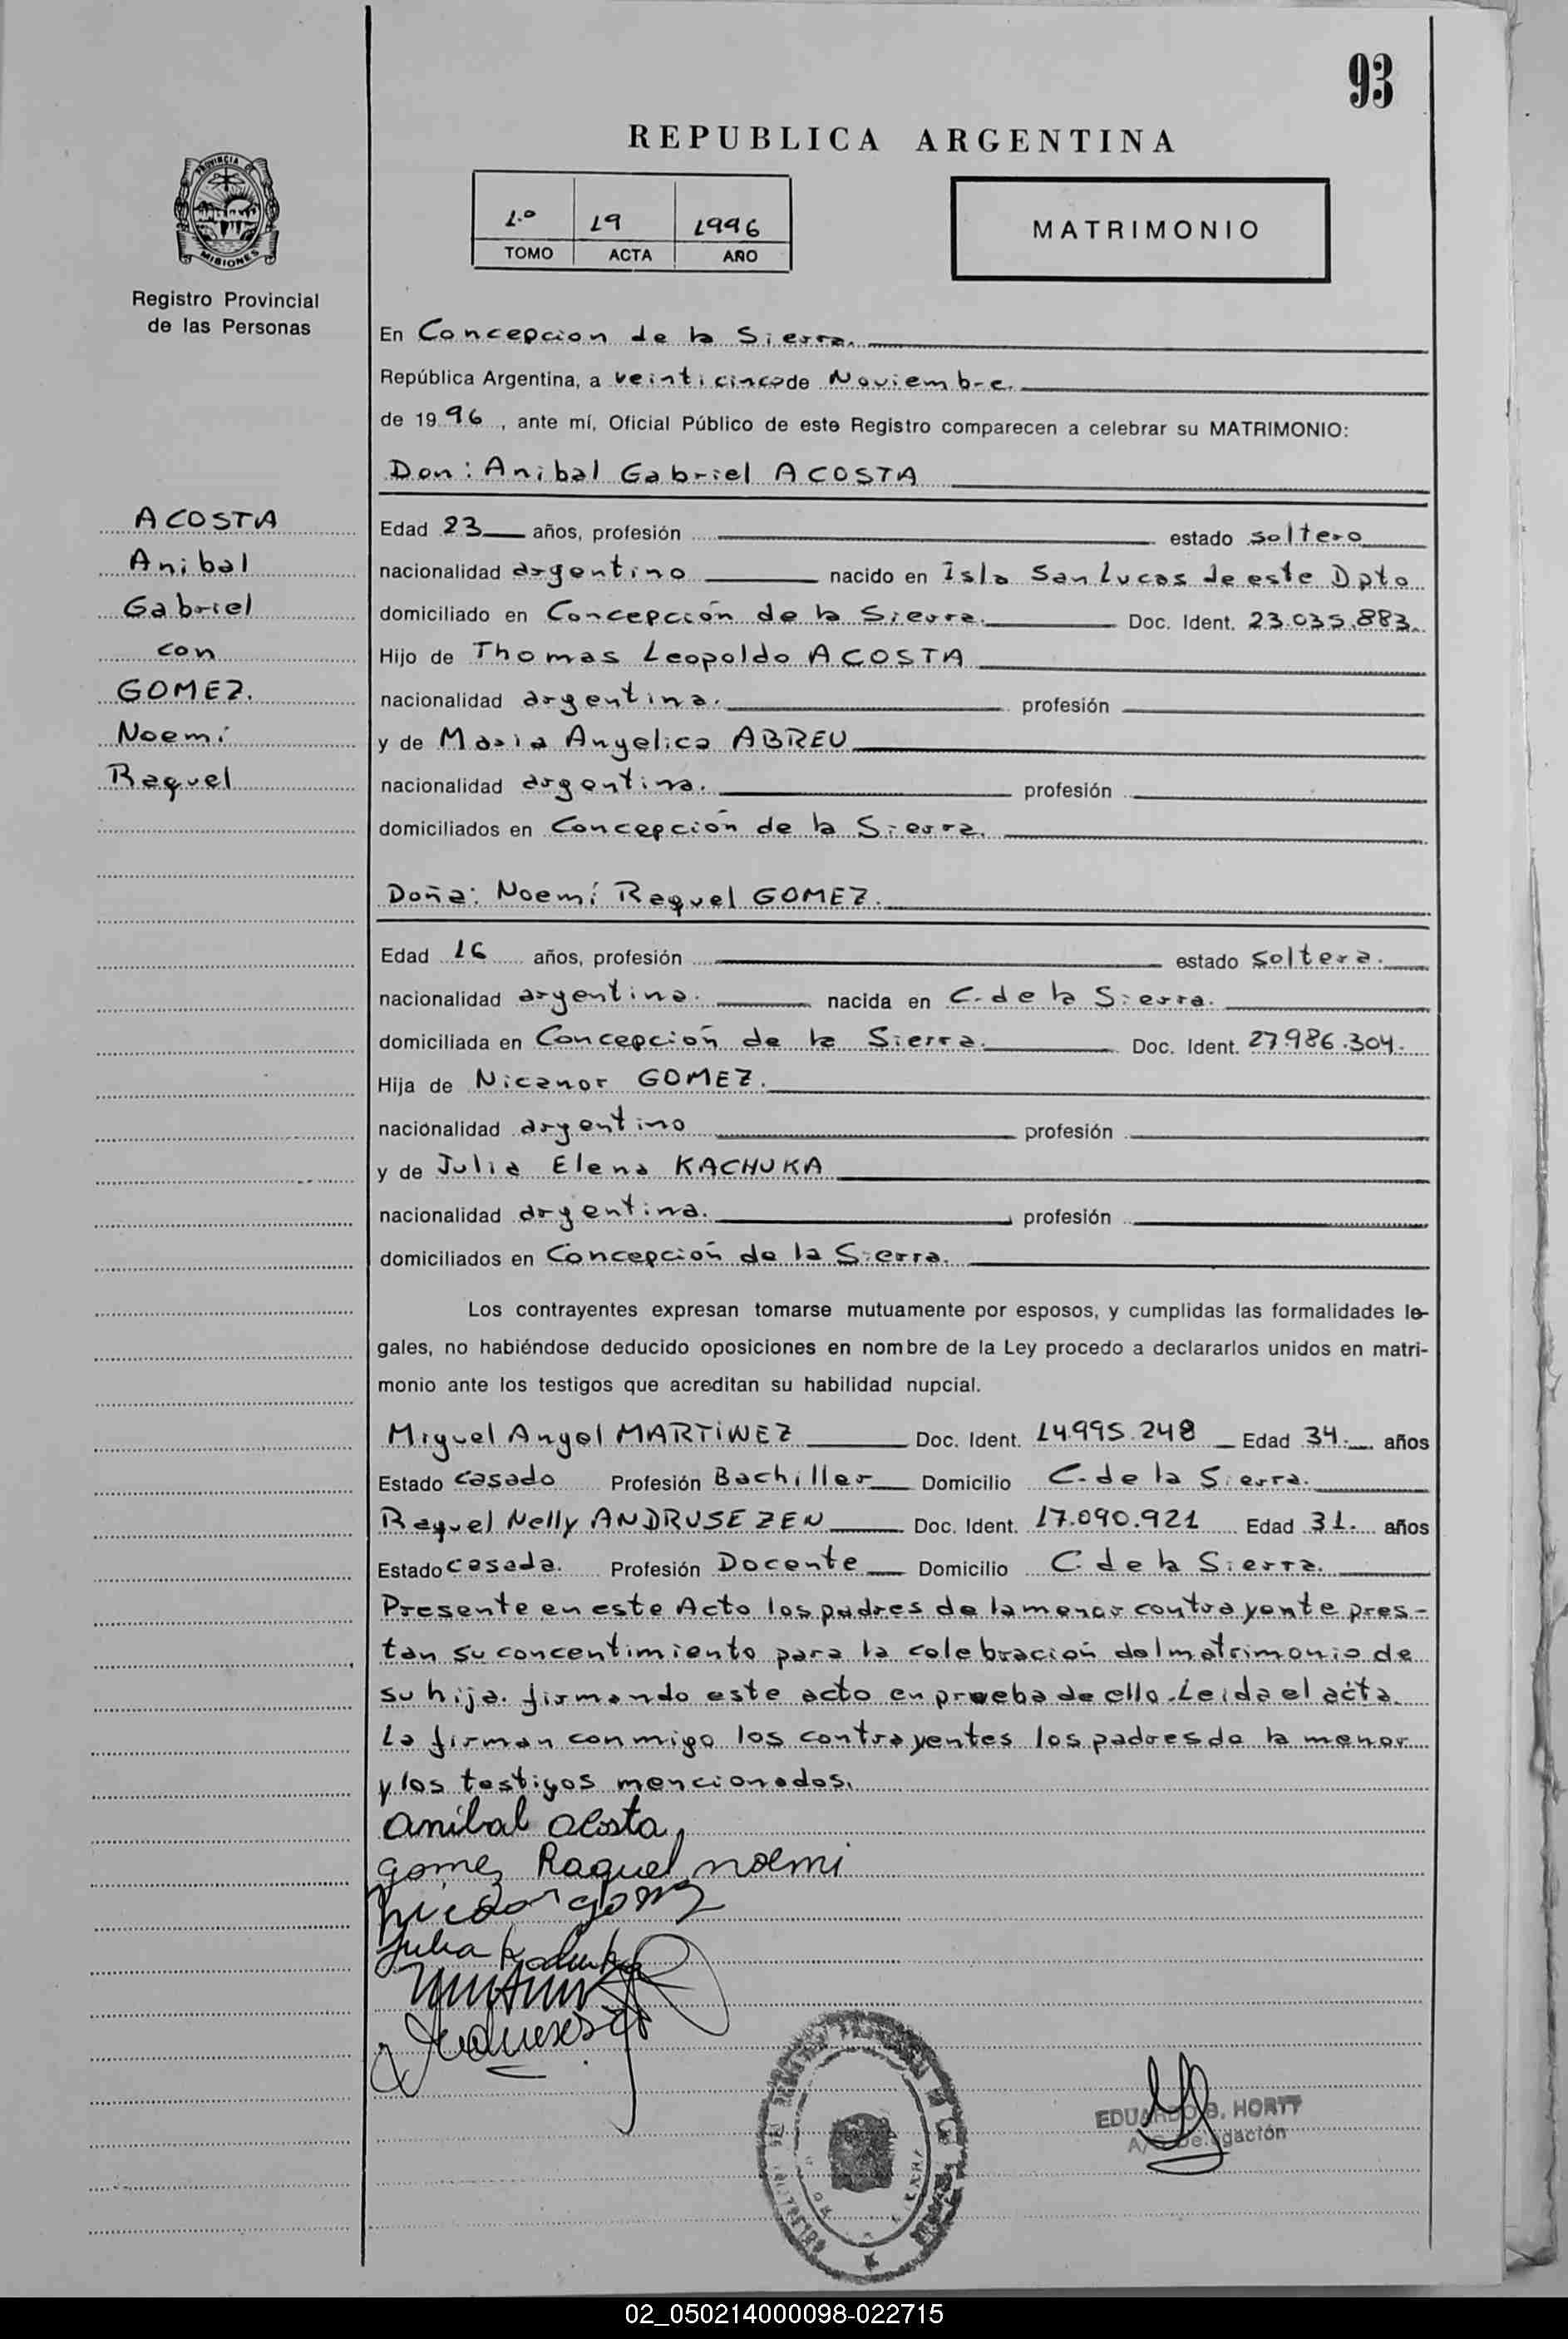 93
REPUBLICA ARGENTINA
PROVINCIA DE
MISIONES
Registro Provincial
de las Personas
1.º 19 1996
TOMO ACTA AÑO
MATRIMONIO
En Concepcion de la Sierra.
República Argentina, a veinticinco de Noviembre.
de 1996, ante mí, Oficial Público de este Registro comparecen a celebrar su MATRIMONIO:
Don: Anibal Gabriel ACOSTA
ACOSTA
Anibal
Gabriel
con
GOMEZ.
Noemí
Raquel
Edad 23 años, profesión estado soltero
nacionalidad argentino nacido en Isla San Lucas de este Dpto
domiciliado en Concepción de la Sierra. Doc. Ident. 23.035.883.
Hijo de Thomas Leopoldo ACOSTA
nacionalidad argentina. profesión
y de Maria Angelica ABREU
nacionalidad argentina. profesión
domiciliados en Concepción de la Sierra.
Doña: Noemí Raquel GOMEZ.
Edad 16 años, profesión estado soltera.
nacionalidad argentina. nacida en C. de la Sierra.
domiciliada en Concepción de la Sierra. Doc. Ident. 27986.304.
Hija de Nicanor GOMEZ.
nacionalidad argentino profesión
y de Julia Elena KACHUKA
nacionalidad argentina. profesión
domiciliados en Concepción de la Sierra.
Los contrayentes expresan tomarse mutuamente por esposos, y cumplidas las formalidades le-
gales, no habiéndose deducido oposiciones en nombre de la Ley procedo a declararlos unidos en matri-
monio ante los testigos que acreditan su habilidad nupcial.
Miguel Angel MARTINEZ Doc. Ident. 14995.248 Edad 34. años
Estado casado Profesión Bachiller Domicilio C. de la Sierra.
Raquel Nelly ANDRUSEZEN Doc. Ident. 17.090.921 Edad 31. años
Estado casada. Profesión Docente Domicilio C. de la Sierra.
Presente en este Acto los padres de la menor contrayente pres-
tan su concentimiento para la celebración del matrimonio de
su hija. firmando este acto en prueba de ello. Leida el acta
La firman conmigo los contrayentes los padres de la menor
y los testigos mencionados.
anibal acosta
gomez Raquel noemi
Julia
EDUARDO B. HORTT
Delegación
02_050214000098-022715